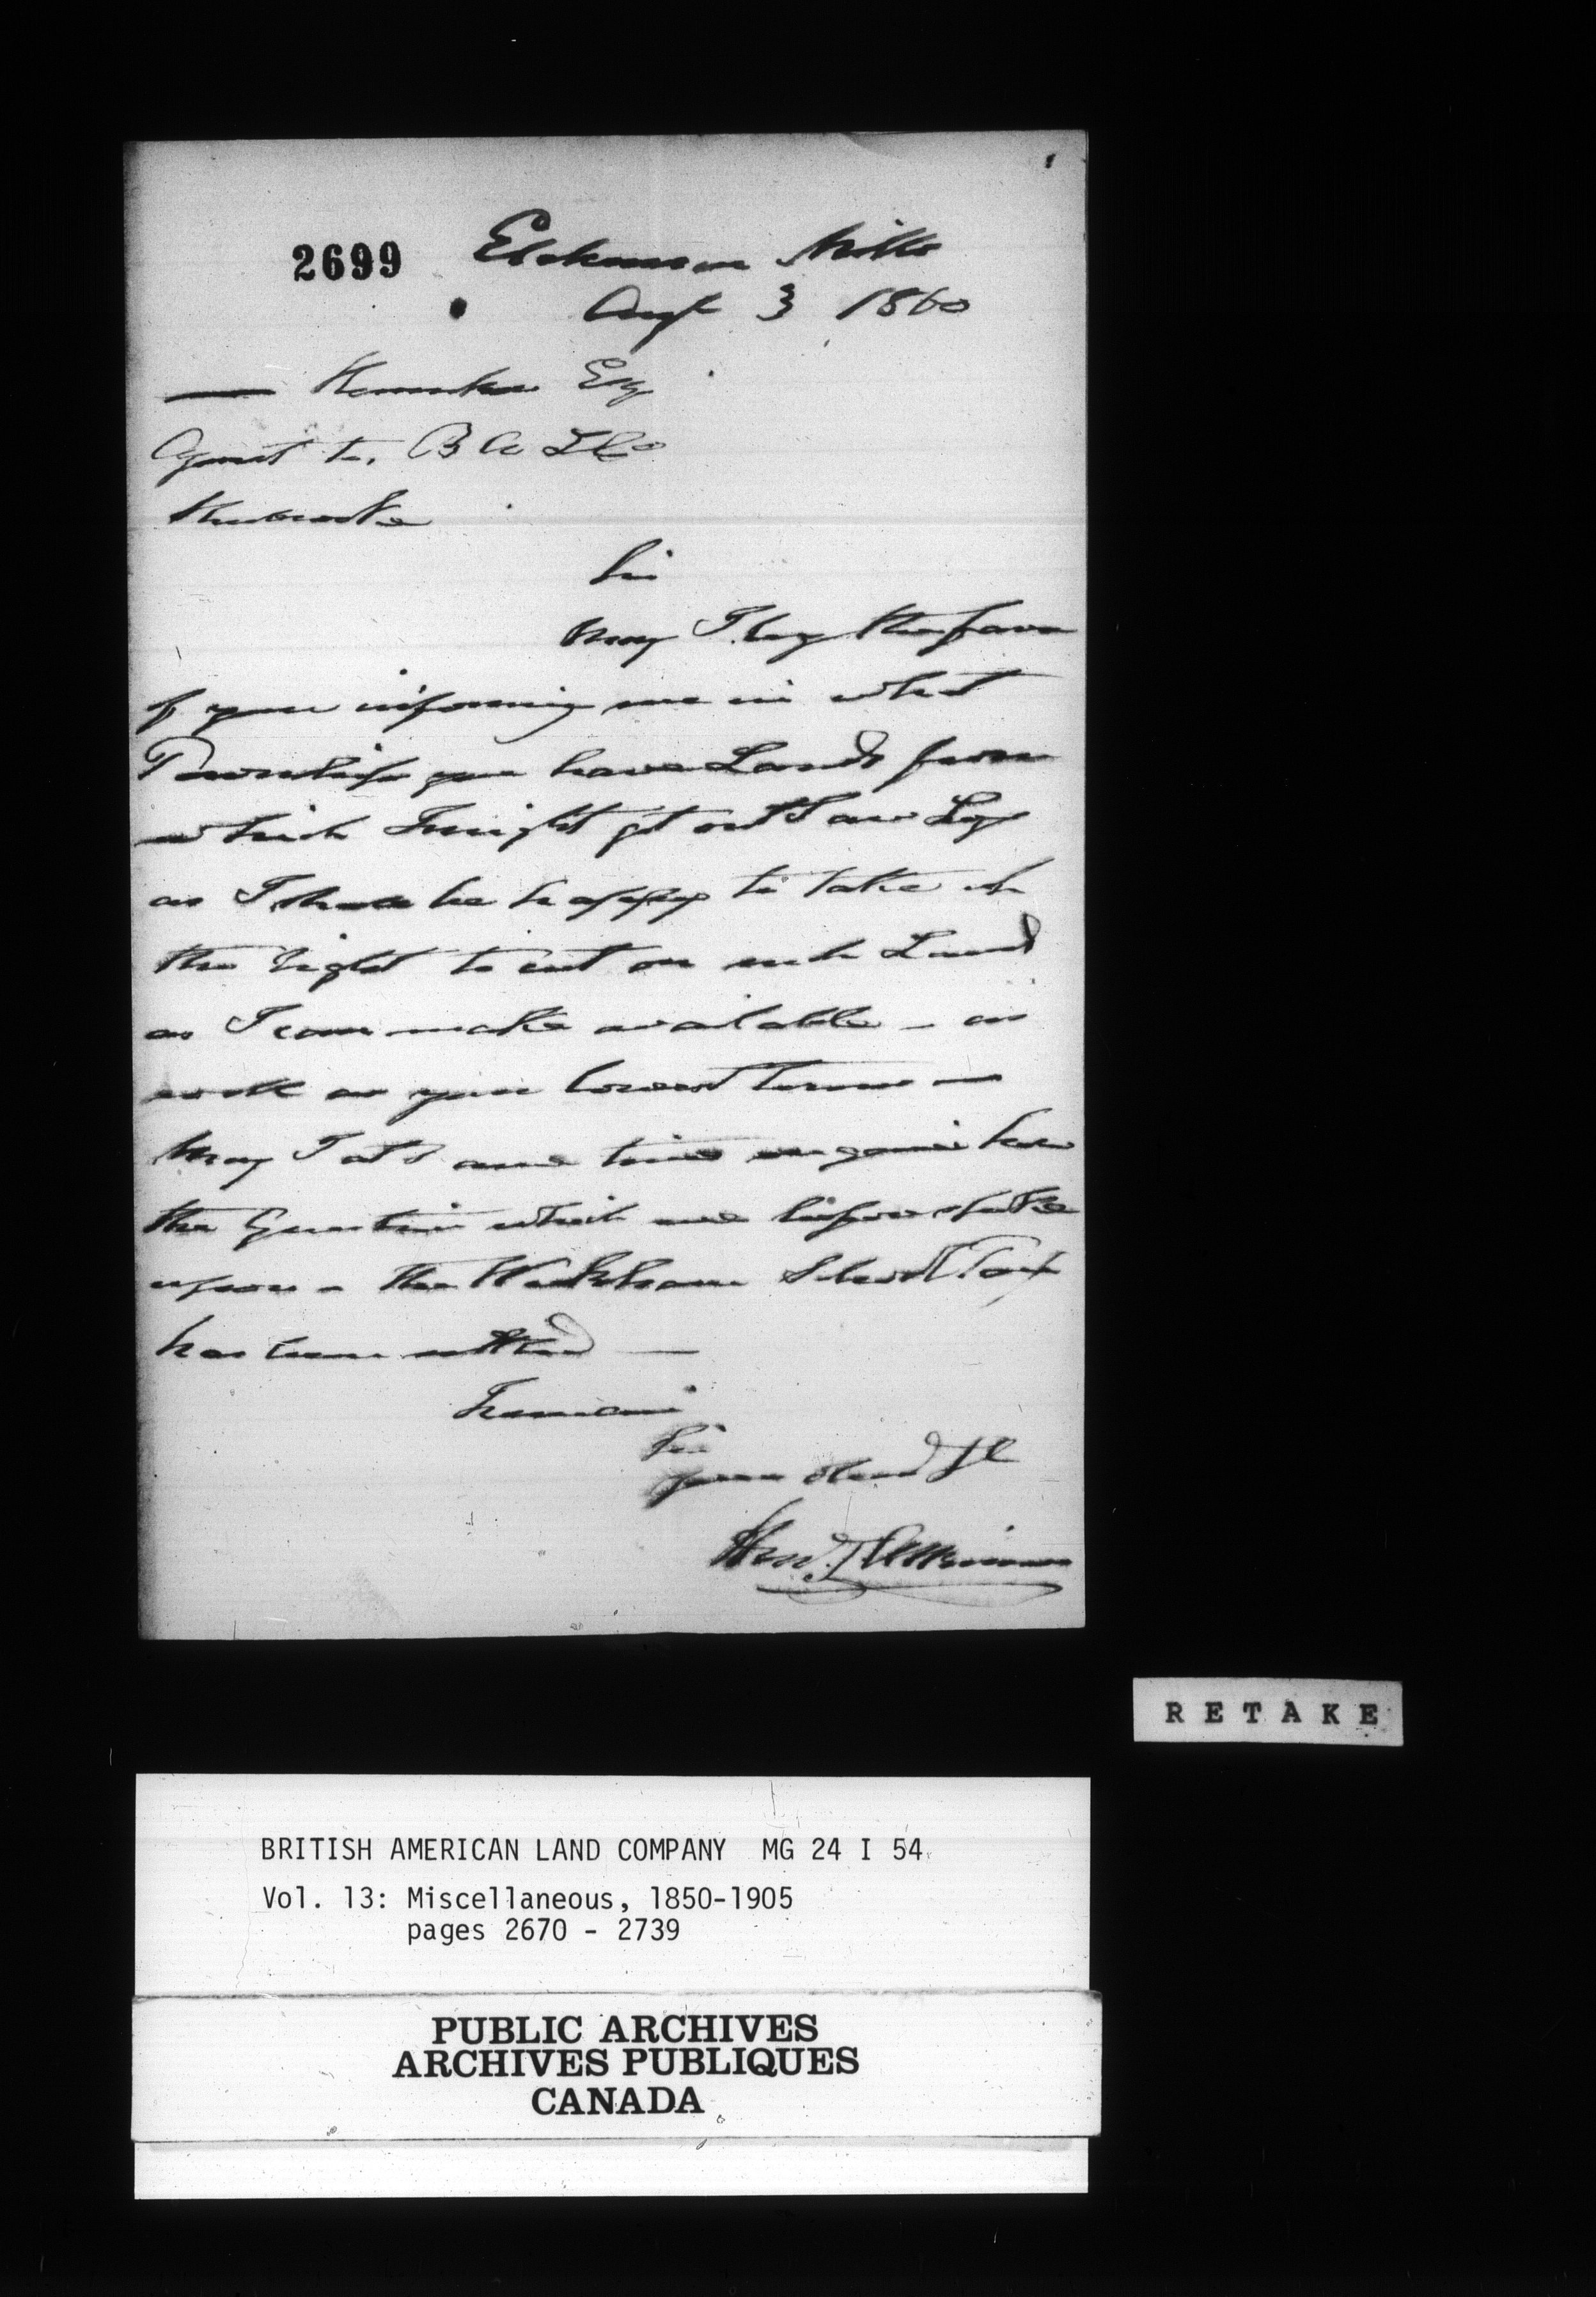 2699 Etchemin Mills
Augt 3 1860
Esq
Agent to. B A L Co
Sherbrooke
Sir
May I beg the favor
of your informing me in what
Townships you have Lands from
which I might get out Saw Logs
as I shall be happy to take
the right to cut on such Land
as I can make available - as
well as your lowest Terms -
May I at same time enquire how
the Question which we before spoke
upon - the Wickham School Tax
has been settled -
I remain
Sir
Your Obed St
Henry Atkinson
RETAKE
BRITISH AMERICAN LAND COMPANY MG 24 I 54
Vol. 13: Miscellaneous, 1850-1905
pages 2670 - 2739
PUBLIC ARCHIVES
ARCHIVES PUBLIQUES
CANADA